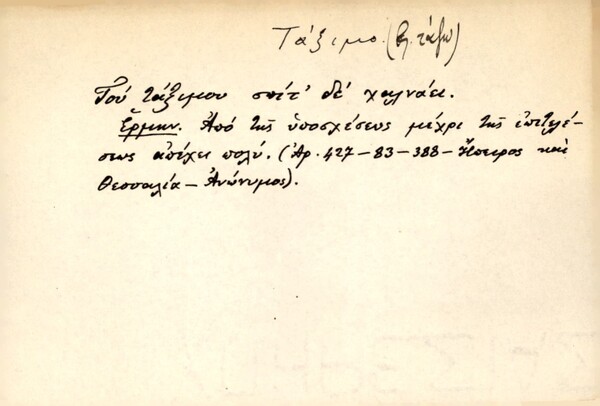 Τάξιμο. (βλ. τάζω)
Τού τάξιμου σπίτ' δέ χαλνάει.
Ἑρμην. Ἀπό τῆς ὑποσχέσεως μέχρι τῆς ἐπιτελέ-
σεως ἀπέχει πολύ. (Ἀρ. 427-83-388-Ἤπειρος καί
Θεσσαλία-Ἀνώνυμος).